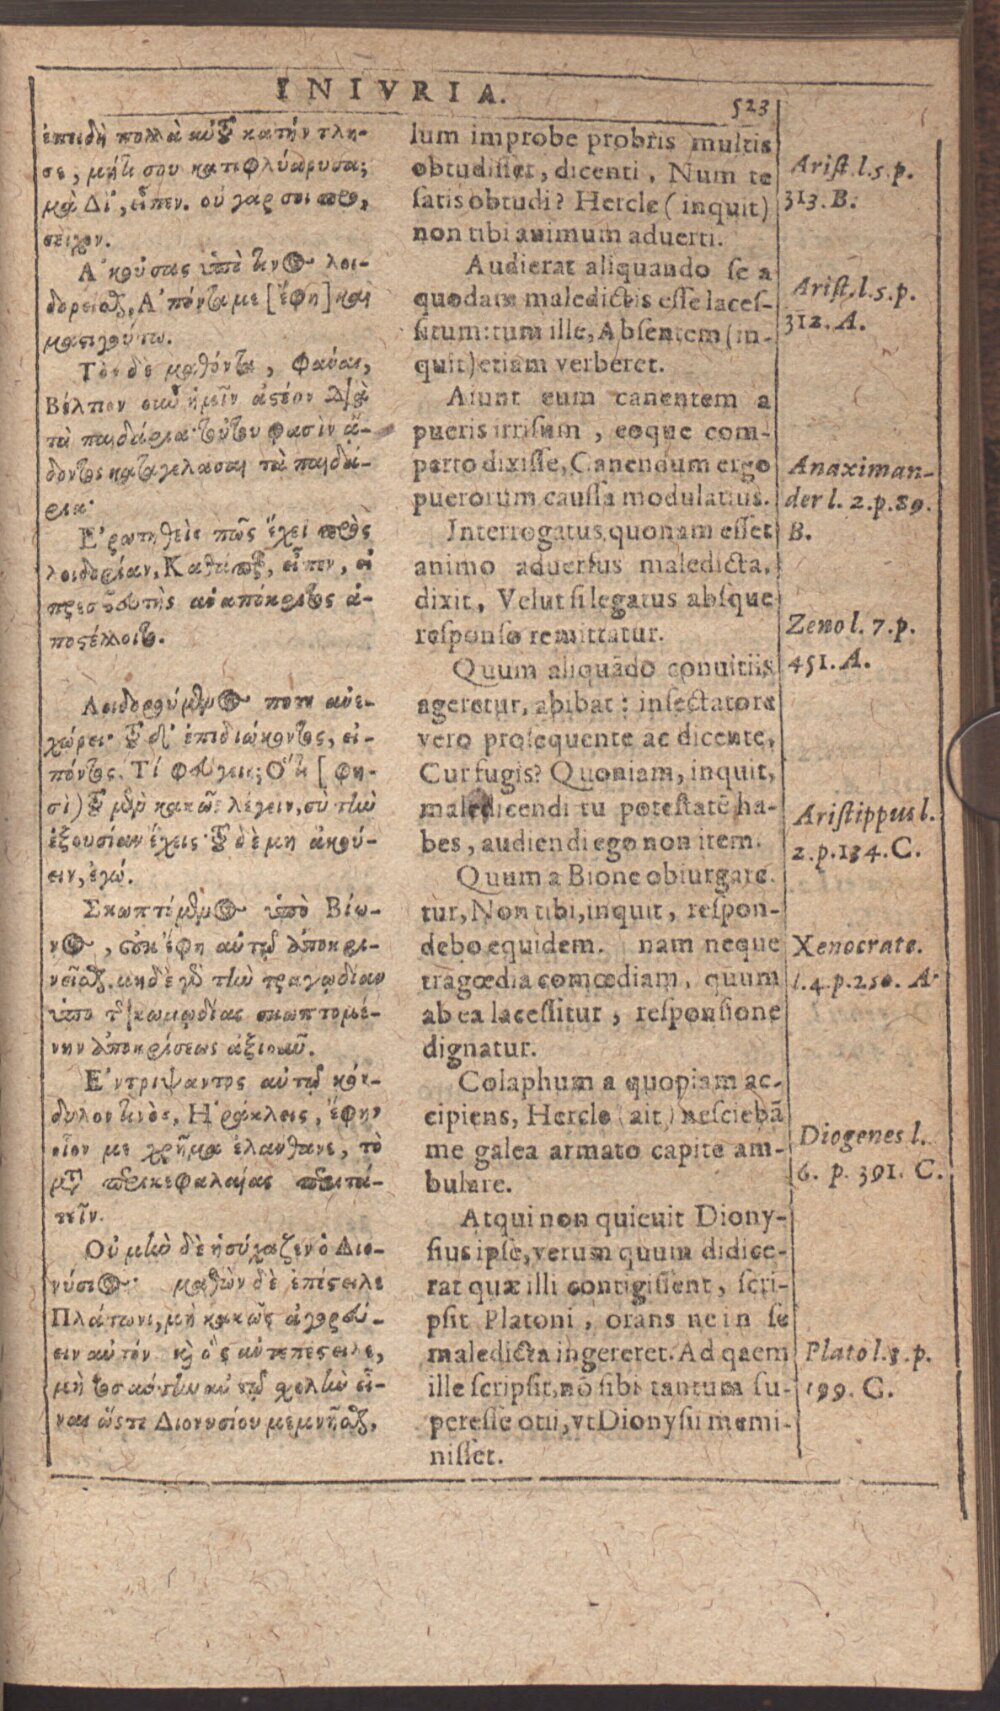 INIVRIA.
523
ἐπειδὴ πολλὰ αὐτοῦ κατήντλη-
σε, μήτι σου κατεφλυάρησα;
μὰ Δί, εἶπεν. οὐ γάρ σοι προ,
σεῖχον.
Ἀκούσας ὑπό τινος λοι-
δορεῖσθαι, Ἀπόντα με [ἔφη] καὶ
μαστιγούτω.
Τὸν δὲ μαθόντα, Φάναι,
Βέλτιον οὖν ἡμῖν ἀστέον διὰ
τὰ παιδάρια· τούτου φασὶν ᾄ-
δοντος καταγελάσαι τὰ παιδά-
ρια·
Ἐρωτηθεὶς πῶς ἔχει πρὸς
λοιδορίαν, Καθάπερ, εἶπεν, εἰ
πρεσβευτὴς ἀναπόκριτος ἀ-
ποστέλλοιτο.
Λοιδορούμενος ποτε ἀνε-
χώρει· τοῦ δ' ἐπιδιώκοντος, εἰ-
πόντος. Τί φεύγεις; Ὅτι [φη-
σὶ) τοῦ μὲν κακῶς λέγειν, σὺ τὴν
ἐξουσίαν ἔχεις· τοῦ δὲ μὴ ἀκού-
ειν, ἐγώ.
Σκωπτόμενος ὑπὸ Βίω-
νος, οὐκ ἔφη αὐτῷ ἀποκρι-
νεῖσθαι. μηδὲ γὰρ τὴν τραγῳδίαν
ὑπὸ τῆς κωμῳδίας σκωπτομέ-
νην ἀποκρίσεως ἀξιοῦν.
Ἐντρίψαντος αὐτῷ κόν-
δυλον τινὸς, Ἡράκλεις, ἔφη,
οἷον με χρῆμα ἐλάνθανε, τὸ
μετὰ περικεφαλαίας περιπα-
τεῖν.
Οὐ μὴν δὲ ἡσύχαζεν ὁ Διο-
νύσιος· μαθὼν δὲ ἐπέστειλε
Πλάτωνι, μὴ κακῶς ἀγορεύ-
ειν αὐτόν καὶ ὃς ἀντεπέστειλε,
μὴ τοσαύτην αὐτῷ σχολὴν εἶ-
ναι ὥστε Διονυσίου μεμνῆσθαι.
lum improbe probris multis
obtudisset, dicenti, Num te
satis obtudi? Hercle (inquit)
non tibi animum aduerti.
Audierat aliquando se a
quodam maledictis esse laces-
situm: tum ille, Absentem (in-
quit) etiam verberet.
Aiunt eum canentem a
pueris irrisum, eoque com-
perto dixisse, Canendum ergo
puerorum caussa modulatius.
Interrogatus, quonam esset
animo aduersus maledicta,
dixit, Velut si legatus absque
responso remittatur.
Quum aliquãdo conuitiis
ageretur, abibat: insectatore
vero prosequente ac dicente,
Cur fugis? Quoniam, inquit,
maledicendi tu potestatẽ ha-
bes, audiendi ego non item.
Quum a Bione obiurgare-
tur, Non tibi, inquit, respon-
debo equidem. nam neque
tragœdia comœdiam, quum
ab ea lacessitur, responsione
dignatur.
Colaphum a quopiam ac-
cipiens, Hercle (ait) nesciebã
me galea armato capite am-
bulare.
Atqui non quieuit Diony-
sius ipse, verum quum didice-
rat quæ illi contigissent, scri-
psit Platoni, orans ne in se
maledicta ingereret. Ad quem
ille scripsit, nõ sibi tantum su-
peresse otii, vt Dionysii memi-
nisset.
Arist. l. 5. p.
313. B.
Arist. l. 5. p.
312. A.
Anaximan-
der l. 2. p. 89.
B.
Zeno l. 7. p.
451. A.
Aristippus l.
2. p. 134. C.
Xenocrate.
l. 4. p. 250. A
Diogenes l.
6. p. 391. C.
Plato l. 3. p.
199. C.